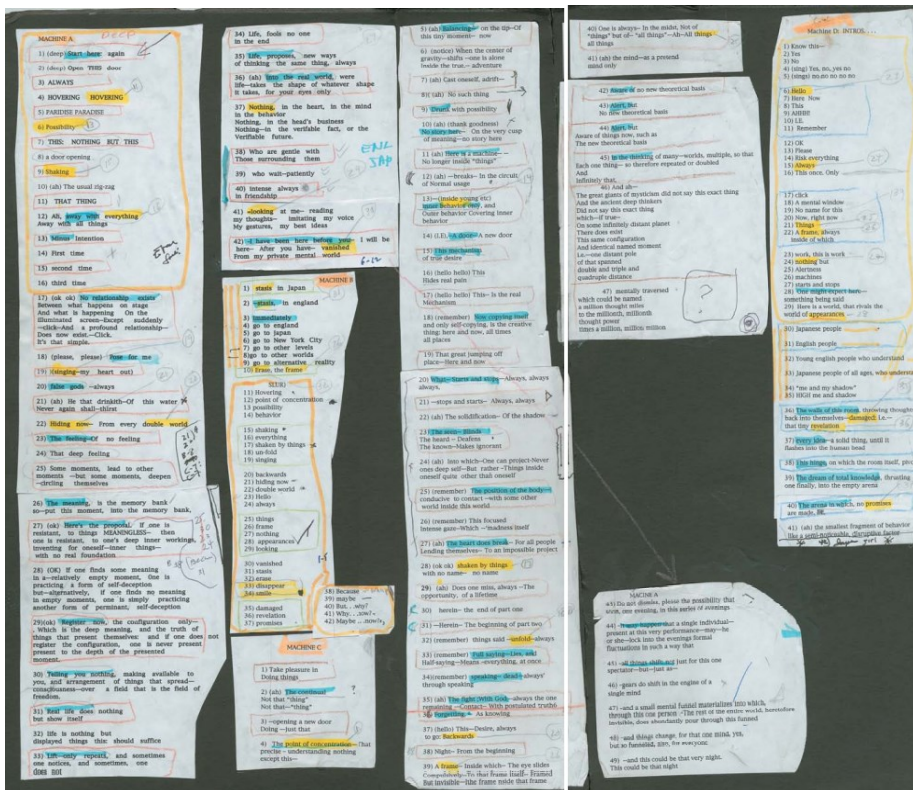 MACHINE A
DEEP
1) (deep) Start here again
2) (deep) Open THIS door
3) ALWAYS
4) HOVERING HOVERING
5) PARIDISE PARADISE
6) Possibility
7) THIS: NOTHING BUT THIS
8) a door opening
9) Shaking
10) (ah) The usual rig-rag
11) THAT THING
12) Ah, away with everything
Away with all things
13) Minus Intention
14) First time
15) second time
16) third time
17) (ok ok) No relationship exists
Between what happens on stage
And what is happening On the
illuminated screen—Except suddenly
—click—And a profound relationship—
Does now exist.—Click.
It's that simple.
18) (please, please) Rose for me
19) (singing—my heart out)
20) false gods —always
21) (ah) He that drinketh—Of this water
Never again shall—thirst
22) Hiding now— From every double world
23) The Feeling—Of no feeling
24) That deep feeling
25) Some moments, lead to other
moments —but some moments, deepen
—circling themselves
26) The meaning, is the memory bank
so—put this moment, into the memory bank,
27) (ok) Here's the proposal If one is
resistant, to things MEANINGLESS— then
one is resistant, to one's deep inner workings,
inventing for oneself—inner things—
with no real foundation.
28) (OK) If one finds some meaning
in a—relatively empty moment, One is
practicing a form of self-deception
but—alternatively, if one finds no meaning
in empty moments, one is simply practicing
another form of perminant, self-deception
29)(ok) Register now, the configuration only—
Which is the deep meaning, and the truth
of things that present themselves: and if one does not
register the configuration, one is never present
to the depth of the presented
moment.
30) Telling you nothing, making available to
you, and arrangement of things that spread—
consciousness—over a field that is the field of
freedom.
31) Real life does nothing
but show itself
32) life is nothing but
displayed things this: should suffice
33) Life—only repeats, and sometimes
one notices, and sometimes, one
does not
34) Life, fools no one
in the end
35) Life, proposes, new ways
of thinking the same thing, always
36) (ah) Into the real world, were
life—takes the shape of whatever shape
it takes, for your eyes only
37) Nothing, in the heart, in the mind
in the behavior
Nothing, in the head's business
Nothing—in the verifable fact, or the
Verifiable future.
38) Who are gentle with
Those surrounding them
ENL
JAP
39) who wait—patiently
40) intense always
in friendship
41) —looking at me— reading
my thoughts— imitating my voice
My gestures, my best ideas
42) —I have been here before you— I will be
here— After you have— vanished
From my private mental world
MACHINE B
1) stasis in japan
2) —stasis, in england
3) immediately
4) go to england
5) go to Japan
6) go to New York City
7) go to other levels
8)go to other worlds
9) go to alternative reality
10) Erase, the frame
11) Hovering
12) point of concentration
13 possibility
14) behavior
15) shaking
16) everything
17) shaken by things
18) un-fold
19) singing
20) backwards
21) hiding now
22) double world
23) Hello
24) always
25) things
26) frame
27) nothing
28) appearances
29) looking
30) vanished
31) stasis
32) erase
33) disappear
34) smile
35) damaged
36) revelation
37) promises
38) Because
39) maybe
40) But. . .why?
41) Why. . .now?
42) Maybe . . .now?
MACHINE C
1) Take pleasure in
Doing things
2) (ah) The continual ?
Not that "thing"
Not that—"thing"
3) —opening a new door
Doing —just that
4) The point of concentration—That
precise - understanding nothing
except this—
5) (ah) balancing— on the tip—Of
this tiny moment— now
6) (notice) When the center of
gravity—shifts —one is alone
inside the true,— adventure
7) (ah) Cast oneself, adrift—
8)( (ah) No such thing
9) Drunk with possibility
10) (ah) (thank goodness)
No story here— On the very cusp
of meaning—no story here
11) (ah) Here is a machine—
No longer inside "things"
12) (ah) —breaks— In the circuit
of Normal usage
13)—(inside young etc)
Inner Behavior only, and
Outer behavior Covering inner
behavior
14) (I.E). A door— A new door
15) This mechanism
of true desire
16) (hello hello) This
Hides real pain
17) (hello hello) This— is the real
Mechanism
18) (remember) Now copying itself
and only self-copying, is the creative
thing: here and now, all times
all places
19) That great jumping off
place—Here and now
20) What—Starts and stops—Always, always
always,
21) —stops and starts— Always, always
22) (ah) The solidification— Of the shadow
23) The seen— Blinds
The heard— Deafens
The known—Makes ignorant
24) (ah) Into which—One can project—Never
ones deep self—But rather —Things inside
oneself quite other than oneself
25) (remember) The position of the body—
conductive to contact —with some other
world inside this world
26) (remember) This focused
Intense gaze—Which —"madness itself
27) (ah) The heart does break— For all people
Lending themselves— To an impossible project
28) (ok ok) shaken by things
with no name— no name
29) (ah) Does one note, always —The
opportunity, of a lifetime
30) herein— the end of part one
31) —Herein— The beginning of part two
32) (remember) things said —unfold—always
33) (remember) Full saying—Lies, ask!
Half-saying—Means —everything, at once
34)(remember) speaking— dead— always
through speaking
35) (ah) The fight ;With God— always the one
remaining —Contact— With postulated truths
36) Forgetting.— As knowing
37) (hello) This—Desire, always
to go: Backwards
38) Night— From the beginning
39) A frame— Inside which— The eye slides
Compulsively—To that frame itself— Framed
But invisible —the frame nside that frame
40) One is always— In the midst, Not of
"things" but of— "all things"—Ah—All things
all things
41) (ah) the mind—as a pretend
mind only
42) Aware of no new theoretical basis
43) Alert, But
No new theoretical basis
44) Alert, but
Aware of things now, such as
The new theoretical basis
45) In the thinking of many— worlds, multiple, so that
Each one thing— so therefore repeated or doubled
And
Infinitely that,
46) And ah—
The great giants of mysticism did not say this exact thing
And the ancient deep thinkers
Did not say this exact thing
which—if true
On some infinitely distant planes
There does exist
This same configuration
And identical named moment
I.e.—one distant pole
of that spanned
double and triple and
quadruple distance
47) mentally traversed
which could be named
a million thought miles
to the millionth, millionth
thought power
times a million, million million
?
MACNINE A
43) Do not dismiss, please the possibility that
soon, one evening, in this series of evenings
44) —It may happen that a single individual—
present at this very performance—may—he
or she—lock into the evenings formal
fluctuations in such a way that
45) —all things shift, not just for this one
spectator—but—just as—
46) —gears do shift in the engine of a
single mind
47) —and a small mental funnel materializes into which,
through this one person —The rest of the entire world, heretofore
invisible, does abundantly pour through this funnel
48) —and things change, for that one mind, yes,
but so funneled, also, for everyone
49) —and this could be that very night.
This could be that night
Machine D: INTROS. . .
1) Know this—
2) Yes
3) No
4) (sing) Yes, no, yes no
5) (sings) no no no no no
6) Hello
7) Here Now
8) This
9) AHHH!
10) I.E.
11) Remember
12) OK
13) Please
14) Risk everything
15) Always
16) This once. Only
17) click
18) A mental window
19) No name for this
20) Now, right now
21) Things
22) A frame, always
inside of which
23) work, this is work
24) nothing but
25) Alertness
26) machines
27) starts and stops
28) One might expect—
something being said
29) Here is a world, that rivals the
world of appearances
30) Japanese people
31) English people
32) Young english people who understand
33) Japanese people of all ages, who understa
34) "me and my shadow"
35) HIGH me and shadow
36) The walls of this room, throwing though
back into themselves—damaged; I.e.—
that tiny revelation
37) every idea—a solid thing, until it
flashes into the human head
38) This thing, on which the room itself, piv
39) The dream of total knowledge, thrusting
one finally, into the empty arena
40) The arena in which, no promises
are made,
41) (ah) the smallest fragment of behavior
like a semi-noticeable, disruptive factor